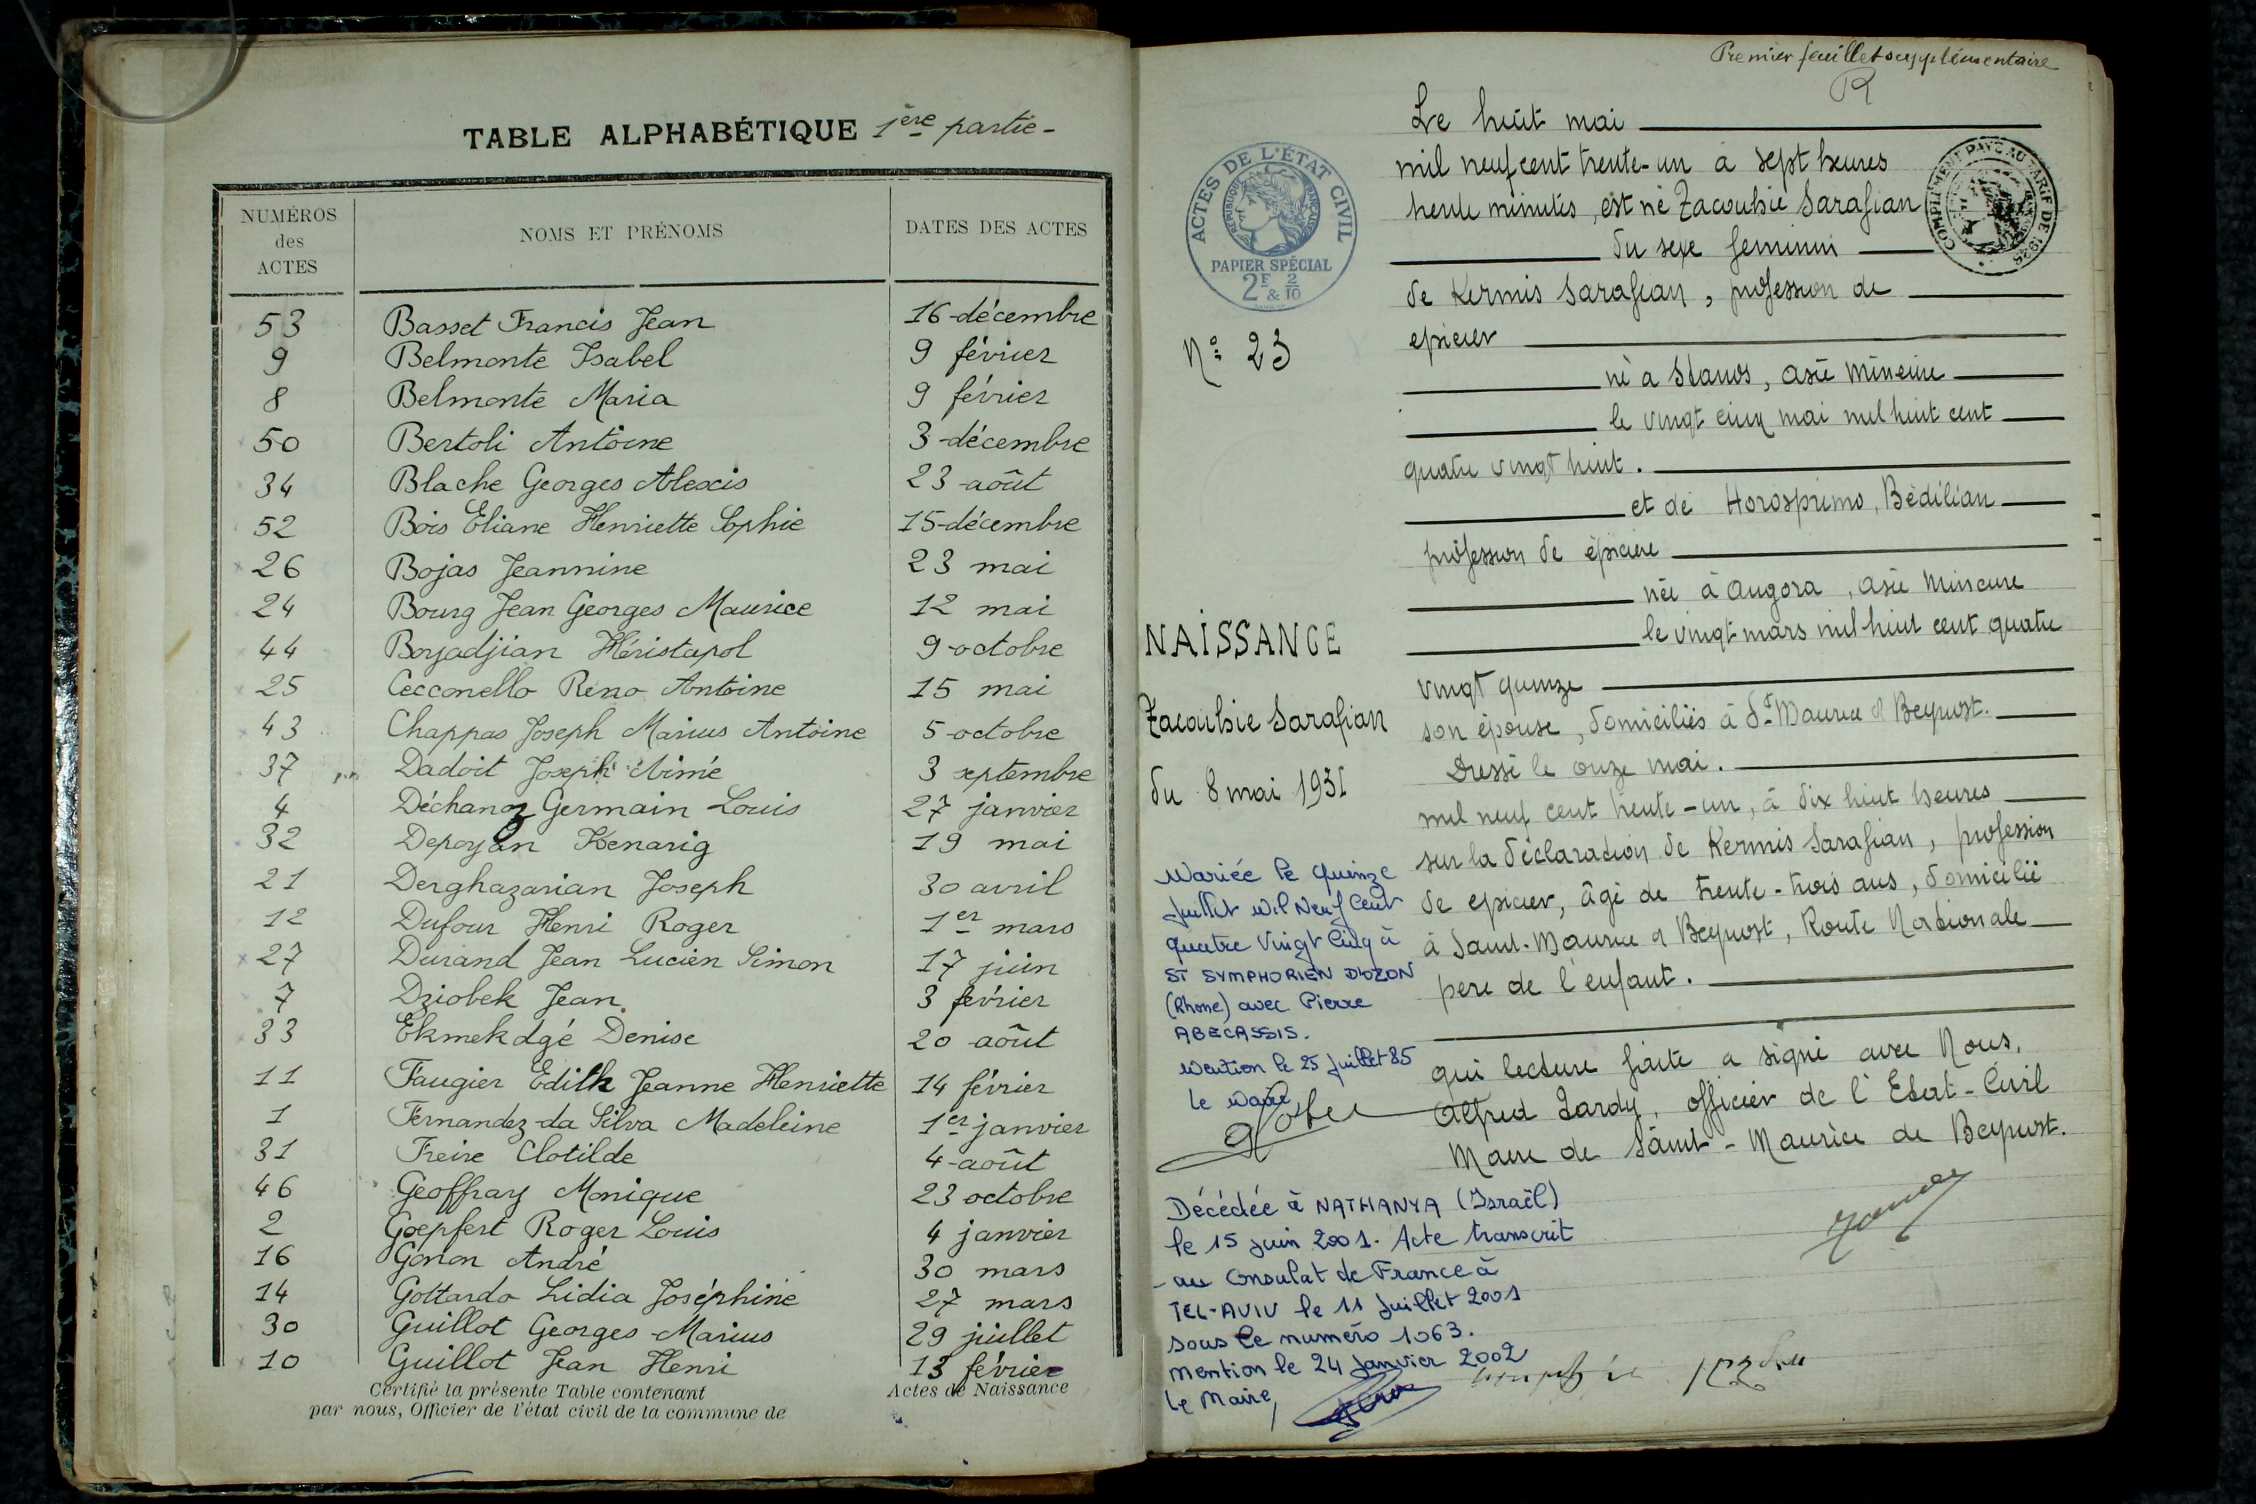 TABLE ALPHABÉTIQUE 1ère partie-
NUMÉROS des ACTES NOMS ET PRÉNOMS DATES DES ACTES
53 Basset Francis Jean 16 décembre
9 Belmonte Isabel 9 février
8 Belmonte Maria 9 février
50 Bertoli Antoine 3 décembre
34 Blache Georges Alexis 23 août
52 Bois Éliane Henriette Sophie 15 décembre
26 Bojas Jeannine 23 mai
24 Bourg Jean Georges Maurice 12 mai
44 Boyadjian Héristapol 9 octobre
25 Cecconello Reno Antoine 15 mai
43 Chappas Joseph Marius Antoine 5 octobre
37 Dadoit Joseph Aimé 3 septembre
4 Déchanoz Germain Louis 27 janvier
32 Depoyan Kenarig 19 mai
21 Derghazarian Joseph 30 avril
12 Dufour Henri Roger 1er mars
27 Durand Jean Lucien Simon 17 juin
7 Dziobek Jean 3 février
33 Ekmekdgé Denise 20 août
11 Faugier Edith Jeanne Henriette 14 février
1 Fernandez da Silva Madeleine 1er janvier
31 Freire Clotilde 4 août
46 Geoffray Monique 23 octobre
2 Goepfert Roger Louis 4 janvier
16 Gonon André 30 mars
14 Gottardo Lidia Joséphine 27 mars
30 Guillot Georges Marius 29 juillet
10 Guillot Jean Henri 13 février
Certifié la présente Table contenant Actes de Naissance
par nous, Officier de l'état civil de la commune de
Premier feuillet supplémentaire
ACTES DE L'ÉTAT CIVIL
RÉPUBLIQUE FRANÇAISE
PAPIER SPÉCIAL
2F & 2/10
COMPLÉMENT PAYÉ AU TARIF DE
Le huit mai
mil neuf cent trente-un à sept heures
trente minutes, est né Zacouhie Sarafian
du sexe feminin
de Kermis Sarafian, profession de
epicier
né à Stanos, asie mineure
le vingt cinq mai mil huit cent
quatre vingt huit.
et de Horosprimo, Bédilian
profession de épiciere
née à Angora, asie Mineure
le vingt mars mil huit cent quatre
vingt quinze
son épouse, domiciliés à St Maurice d Beynost.
Dressé le onze mai.
mil neuf cent trente-un, à dix huit heures
sur la déclaration de Kermis Sarafian, profession
de epicier, âgé de trente-trois ans, domicilié
à Saint-Maurice d Beynost, Route Nationale
pere de l'enfant.
qui lecture faite a signé avec Nous,
Alfred Jardy, officier de l'Etat-Civil
Maire de Saint-Maurice de Beynost.
No 23
NAISSANCE
Zacouhie Sarafian
du 8 mai 1931
Mariée le quinze
juillet mil neuf cent
quatre vingt cinq à
ST SYMPHORIEN D'OZON
(Rhone) avec Pierre
ABECASSIS.
Mention le 25 juillet 85
Le Maire,
Décédée à NATHANYA (Israël)
le 15 juin 2001. Acte transcrit
au Consulat de France à
TEL-AVIV le 11 juillet 2001
sous le numéro 1063.
Mention le 24 janvier 2002
Le Maire,